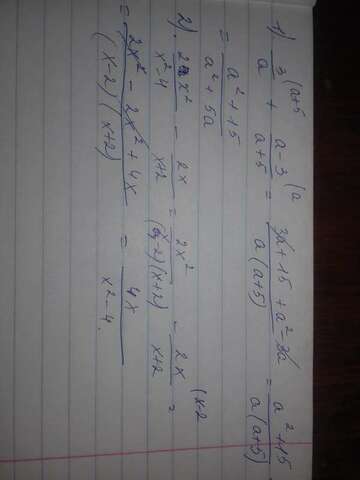 1) 3 (a+5 / a + a-3 (a / a+5 = 3a+15+a²-3a / a(a+5) = a²+15 / a(a+5)
= a²+15 / a²+5a
2). 2x² / x²-4 - 2x / x+2 = 2x² / (x-2)(x+2) - 2x (x-2 / x+2 =
= 2x² - 2x² + 4x / (x-2)(x+2) = 4x / x²-4.